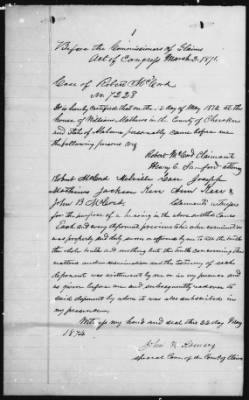 Before the Commissioners of Claims
Act of Congress March 3, 1871.
Case of Robert McCord
No 7228
It is hereby certified that on the 2 day of May 1874 at the
house of William Mathews in the County of Cherokee
and State of Alabama personally came before me
the following persons viz
Robert McCord Claimant
Henry C. Sanford attorney
Robert McCord Joseph
Mathews Jackson Kerr Ann Kerr &
John B McCord Claimants witnesses
for the purpose of a hearing in the above entitled cause
Each and every deponent previous to his examination
was properly and duly sworn or affirmed by me to tell the truth
the whole truth and nothing but the truth concerning the
matters under examination and the testimony of each
deponent was written out by me or in my presence and
as given before me and subsequently read over to
said deponent by whom it was also subscribed in
my presence.
Witness my hand and seal this 22 day of May
1874
John
Special Com. of the Com. of Claims